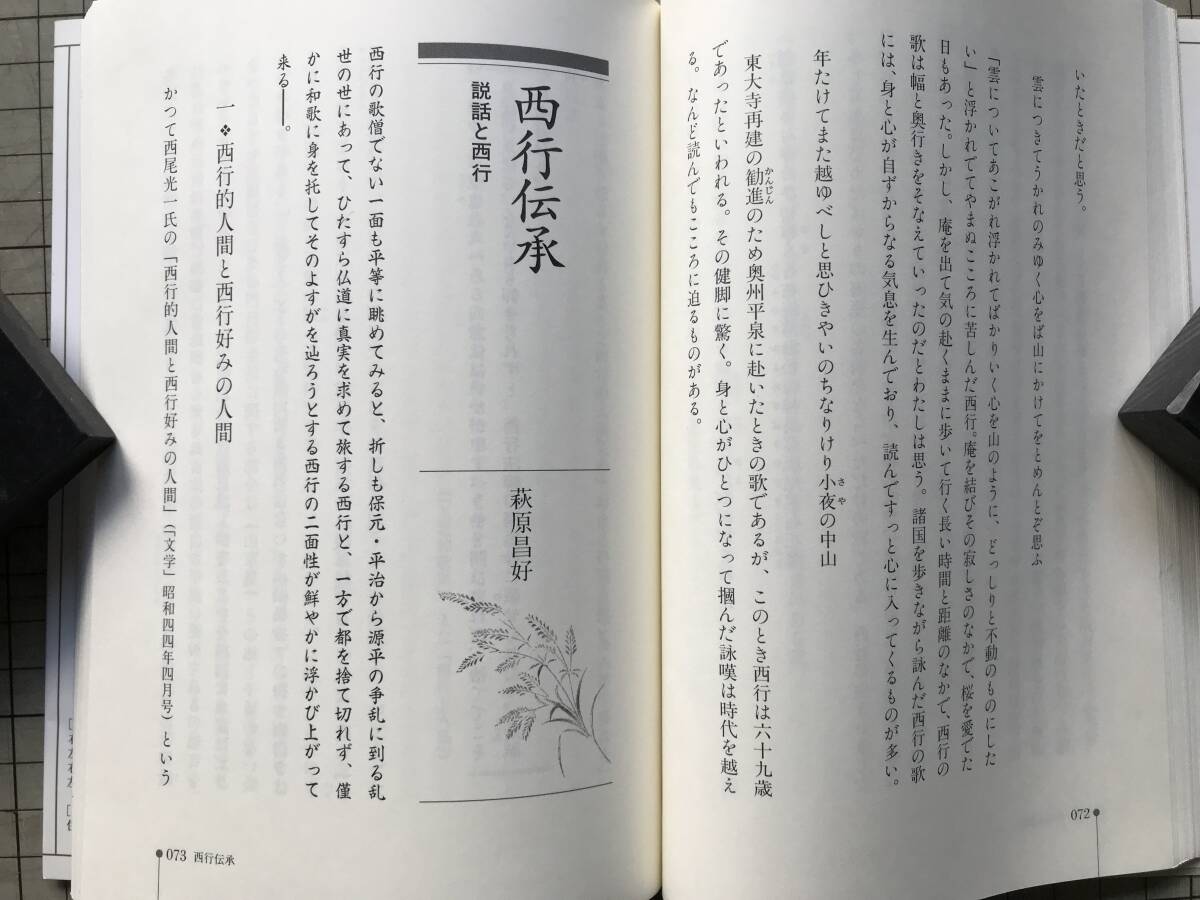 いたときだと思う。
雲につきてうかれのみゆく心をば山にかけてをとめんとぞ思ふ
「雲についてあこがれ浮かれてばかりいく心を山のように、どっしりと不動のものにした
い」と浮かれでてやまぬこころに苦しんだ西行。庵を結びその寂しさのなかで、桜を愛でた
日もあった。しかし、庵を出て気の赴くままに歩いて行く長い時間と距離のなかで、西行の
歌は幅と奥行きをそなえていったのだとわたしは思う。諸国を歩きながら詠んだ西行の歌
には、身と心が自ずからなる気息を生んでおり、読んですっと心に入ってくるものが多い。
年たけてまた越ゆべしと思ひきやいのちなりけり小夜の中山
さや
東大寺再建の勧進のため奥州平泉に赴いたときの歌であるが、このとき西行は六十九歳
かんじん
であったといわれる。その健脚に驚く。身と心がひとつになって摑んだ詠嘆は時代を越え
る。なんど読んでもこころに迫るものがある。
072
西行伝承
説話と西行
萩原昌好
西行の歌僧でない一面も平等に眺めてみると、折しも保元・平治から源平の争乱に到る乱
世の世にあって、ひたすら仏道に真実を求めて旅する西行と、一方で都を捨て切れず、僅
かに和歌に身を托してそのよすがを辿ろうとする西行の二面性が鮮やかに浮かび上がって
来る――。
一 ❖ 西行的人間と西行好みの人間
かつて西尾光一氏の「西行的人間と西行好みの人間」(「文学」昭和四四年四月号)という
073 西行伝承